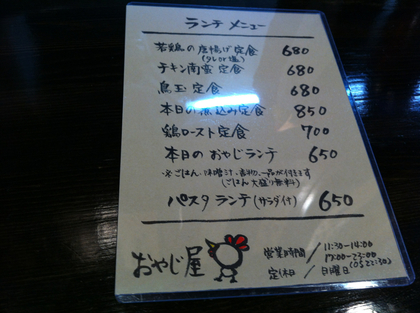 ランチ メニュー
若鶏の唐揚げ定食 680
(タレor塩)
チキン南蛮定食 680
鳥玉定食 680
本日の煮込み定食 850
鶏ロースト定食 700
本日のおやじランチ 650
※ごはん、味噌汁、お新香、一品が付きます
(ごはん大盛り無料)
パスタランチ(サラダ付) 650
おやじ屋
営業時間/11:30-14:00
17:00-23:00
(OS22:30)
定休日/日曜日